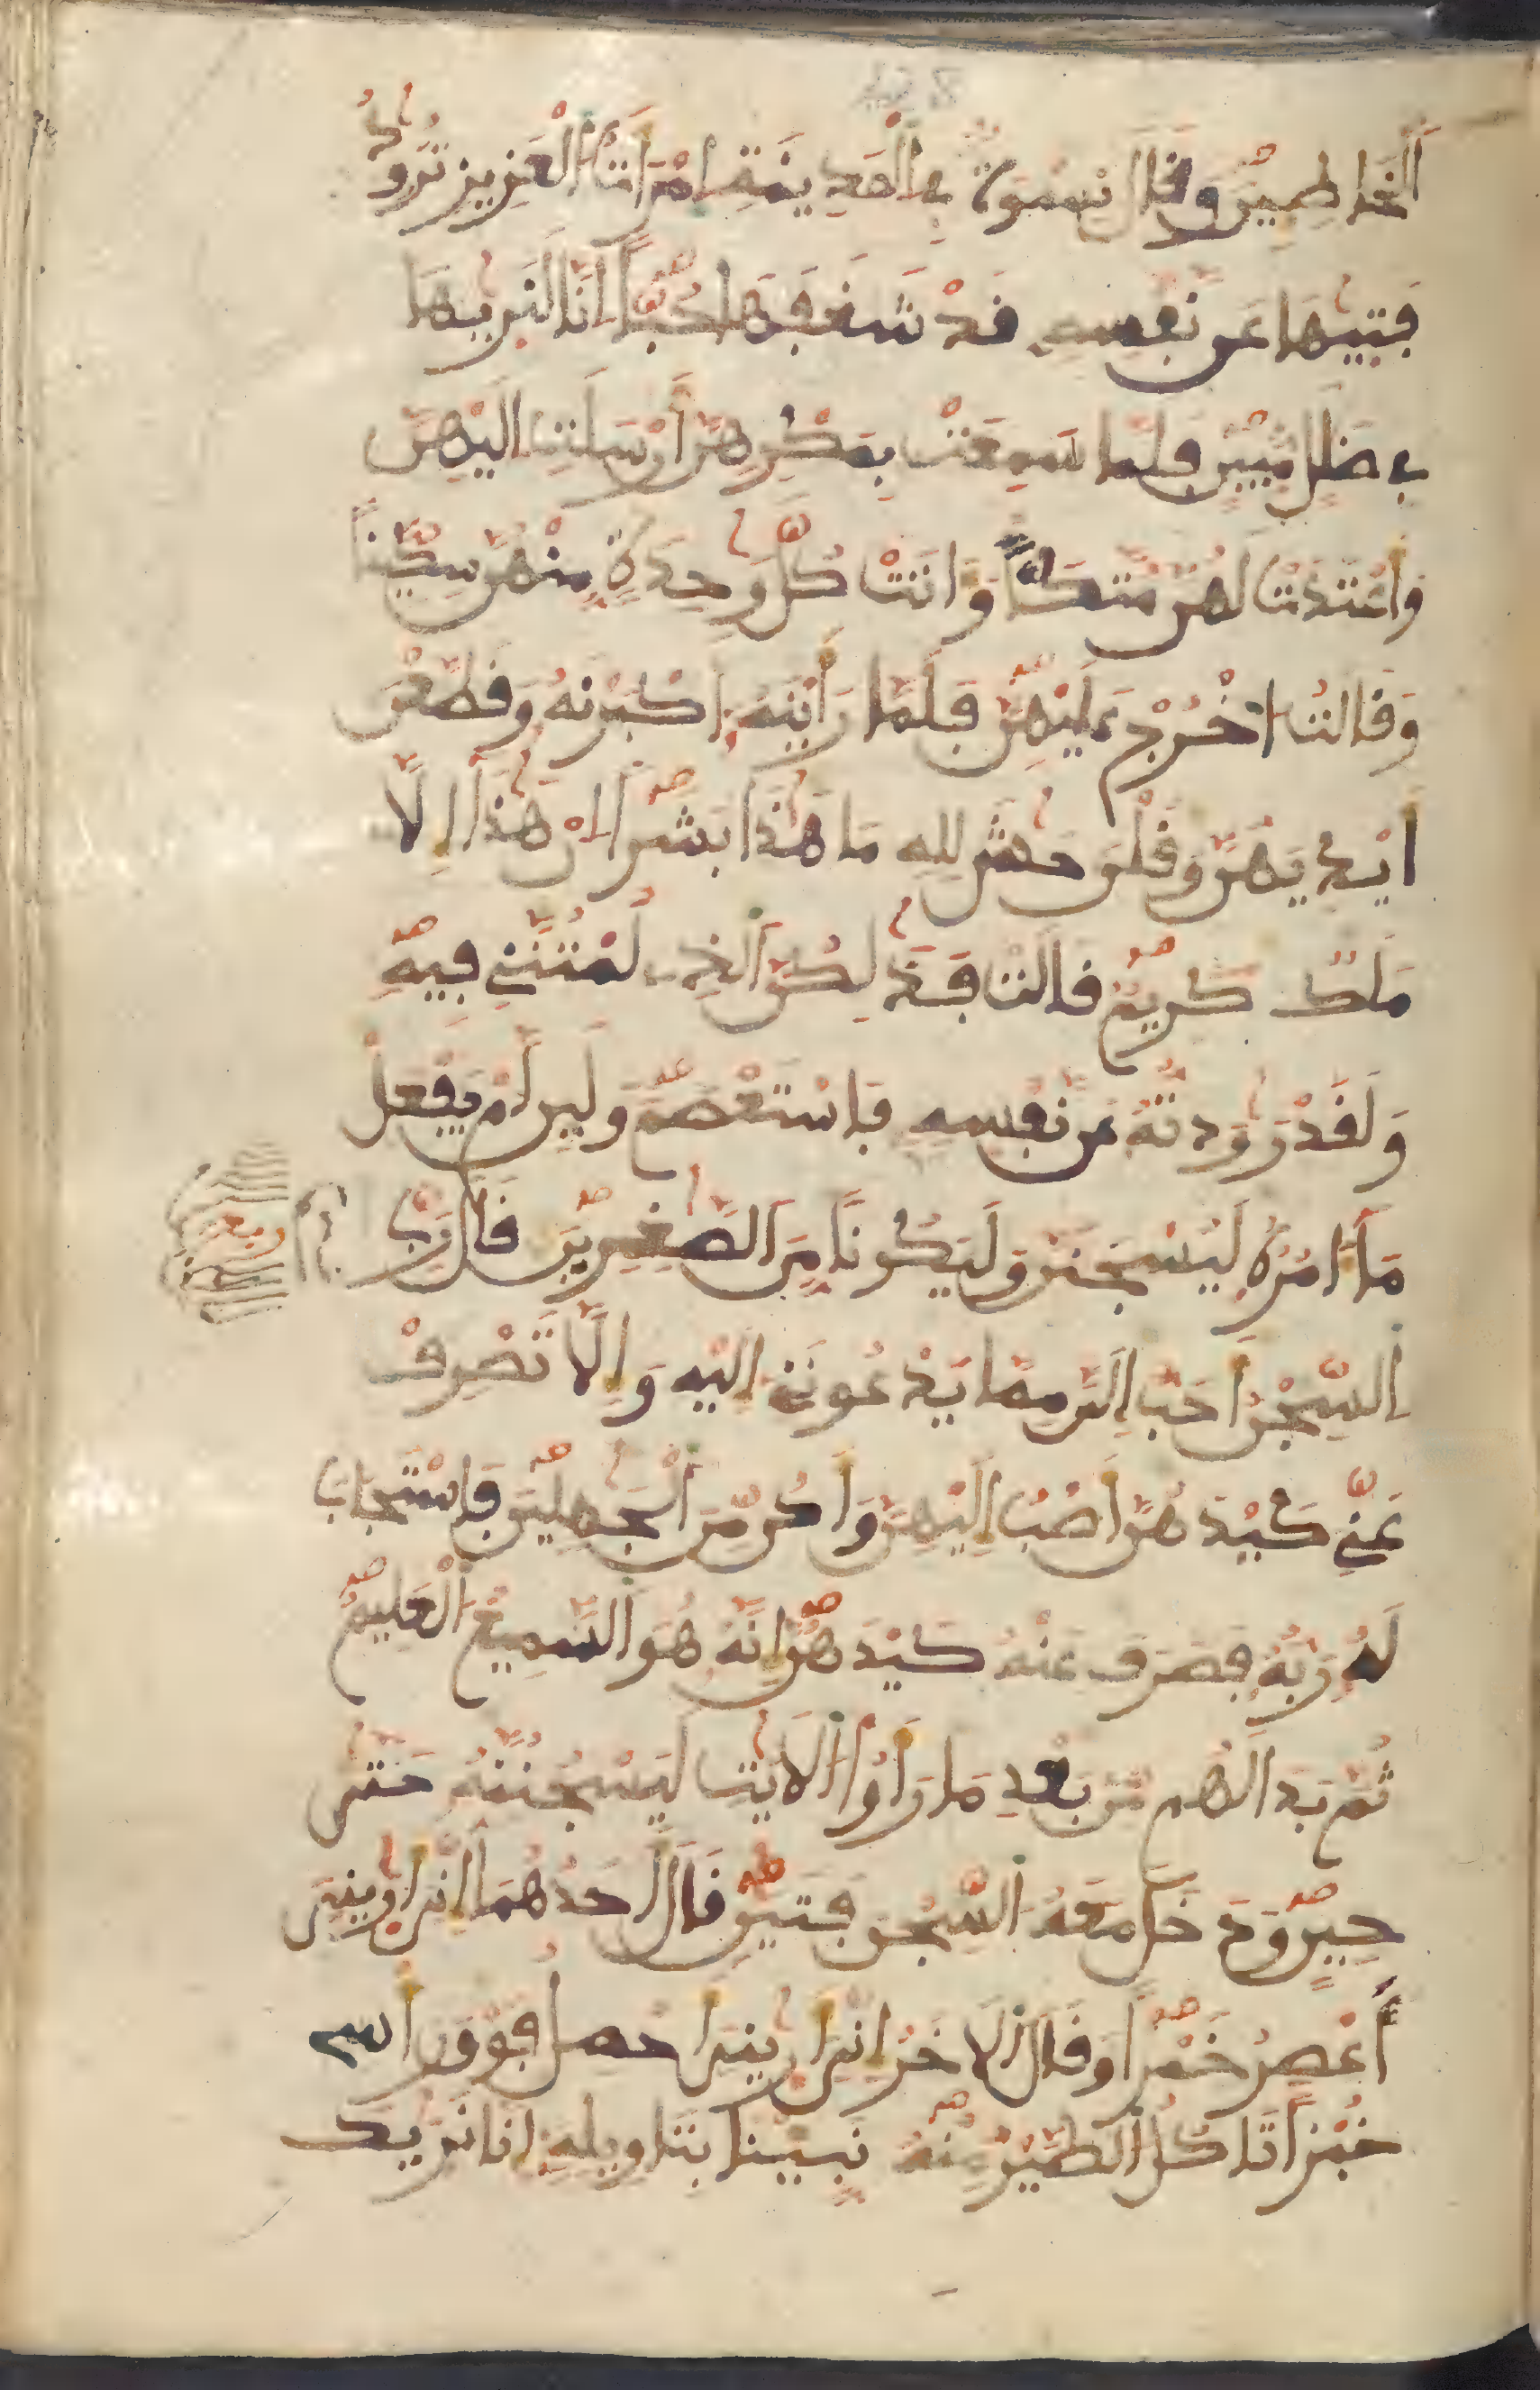 اَ۬لْخَاطِـِٕينَ وَقَالَ نِسْوَةٞ فِے اِ۬لْمَدِينَةِ اِ۪مْرَأَتُ اُ۬لْعَزِيزِ تُرَٰوِدُ
فَتَيٰهَا عَن نَّفْسِهِۦ قَدْ شَغَفَهَا حُبّاً اِنَّا لَنَر۪يٰهَا
فِے ضَلَٰلٖ مُّبِينٖ فَلَمَّا سَمِعَتْ بِمَكْرِهِنَّ أَرْسَلَتِ اِلَيْهِنَّ
وَأَعْتَدَتْ لَهُنَّ مُتَّكَـٔاٗ وَءَاتَتْ كُلَّ وَٰحِدَةٖ مِّنْهُنَّ سِكِّيناٗ
وَقَالَتُ اُ۟خْرُجْ عَلَيْهِنَّ فَلَمَّا رَأَيْنَهُۥٓ أَكْبَرْنَهُۥ وَقَطَّعْنَ
أَيْدِيَهُنَّ وَقُلْنَ حَٰشَ لِلهِ مَا هَٰذَا بَشَراً اِنْ هَٰذَآ إِلَّا
مَلَكٞ كَرِيمٞ قَالَتْ فَذَٰلِكُنَّ اَ۬لذِے لُمْتُنَّنِے فِيهِ
وَلَقَدْ رَٰوَدتُّهُۥ عَن نَّفْسِهِۦ فَاسْتَعْصَمَ وَلَئِن لَّمْ يَفْعَلْ
مَآ ءَامُرُهُۥ لَيُسْجَنَنَّ وَلَيَكُوناٗ مِّنَ اَ۬لصَّٰغِرِينَ قَالَ رَبِّ
اِ۬لسِّجْنُ أَحَبُّ إِلَيَّ مِمَّا يَدْعُونَنِےٓ إِلَيْهِ وَإِلَّا تَصْرِفْ
عَنِّے كَيْدَهُنَّ أَصْبُ إِلَيْهِنَّ وَأَكُن مِّنَ اَ۬لْجَٰهِلِينَ فَاسْتَجَابَ
لَهُۥ رَبُّهُۥ فَصَرَفَ عَنْهُ كَيْدَهُنَّ إِنَّهُۥ هُوَ اَ۬لسَّمِيعُ اُ۬لْعَلِيمُ
ثُمَّ بَدَا لَهُم مِّنۢ بَعْدِ مَا رَأَوُاْ اُ۬لَايَٰتِ لَيَسْجُنُنَّهُۥ حَتَّىٰ
حِينٖ وَدَخَلَ مَعَهُ اُ۬لسِّجْنَ فَتَيَٰنِ قَالَ أَحَدُهُمَآ إِنِّيَ أَر۪يٰنِيَ
أَعْصِرُ خَمْراٗ وَقَالَ اَ۬لَاخَرُ إِنِّيَ أَر۪يٰنِيَ أَحْمِلُ فَوْقَ رَأْسِے
خُبْزاٗ تَاكُلُ اُ۬لطَّيْرُ مِنْهُ نَبِّئْنَا بِتَاوِيلِهِۦٓ إِنَّا نَر۪يٰكَ